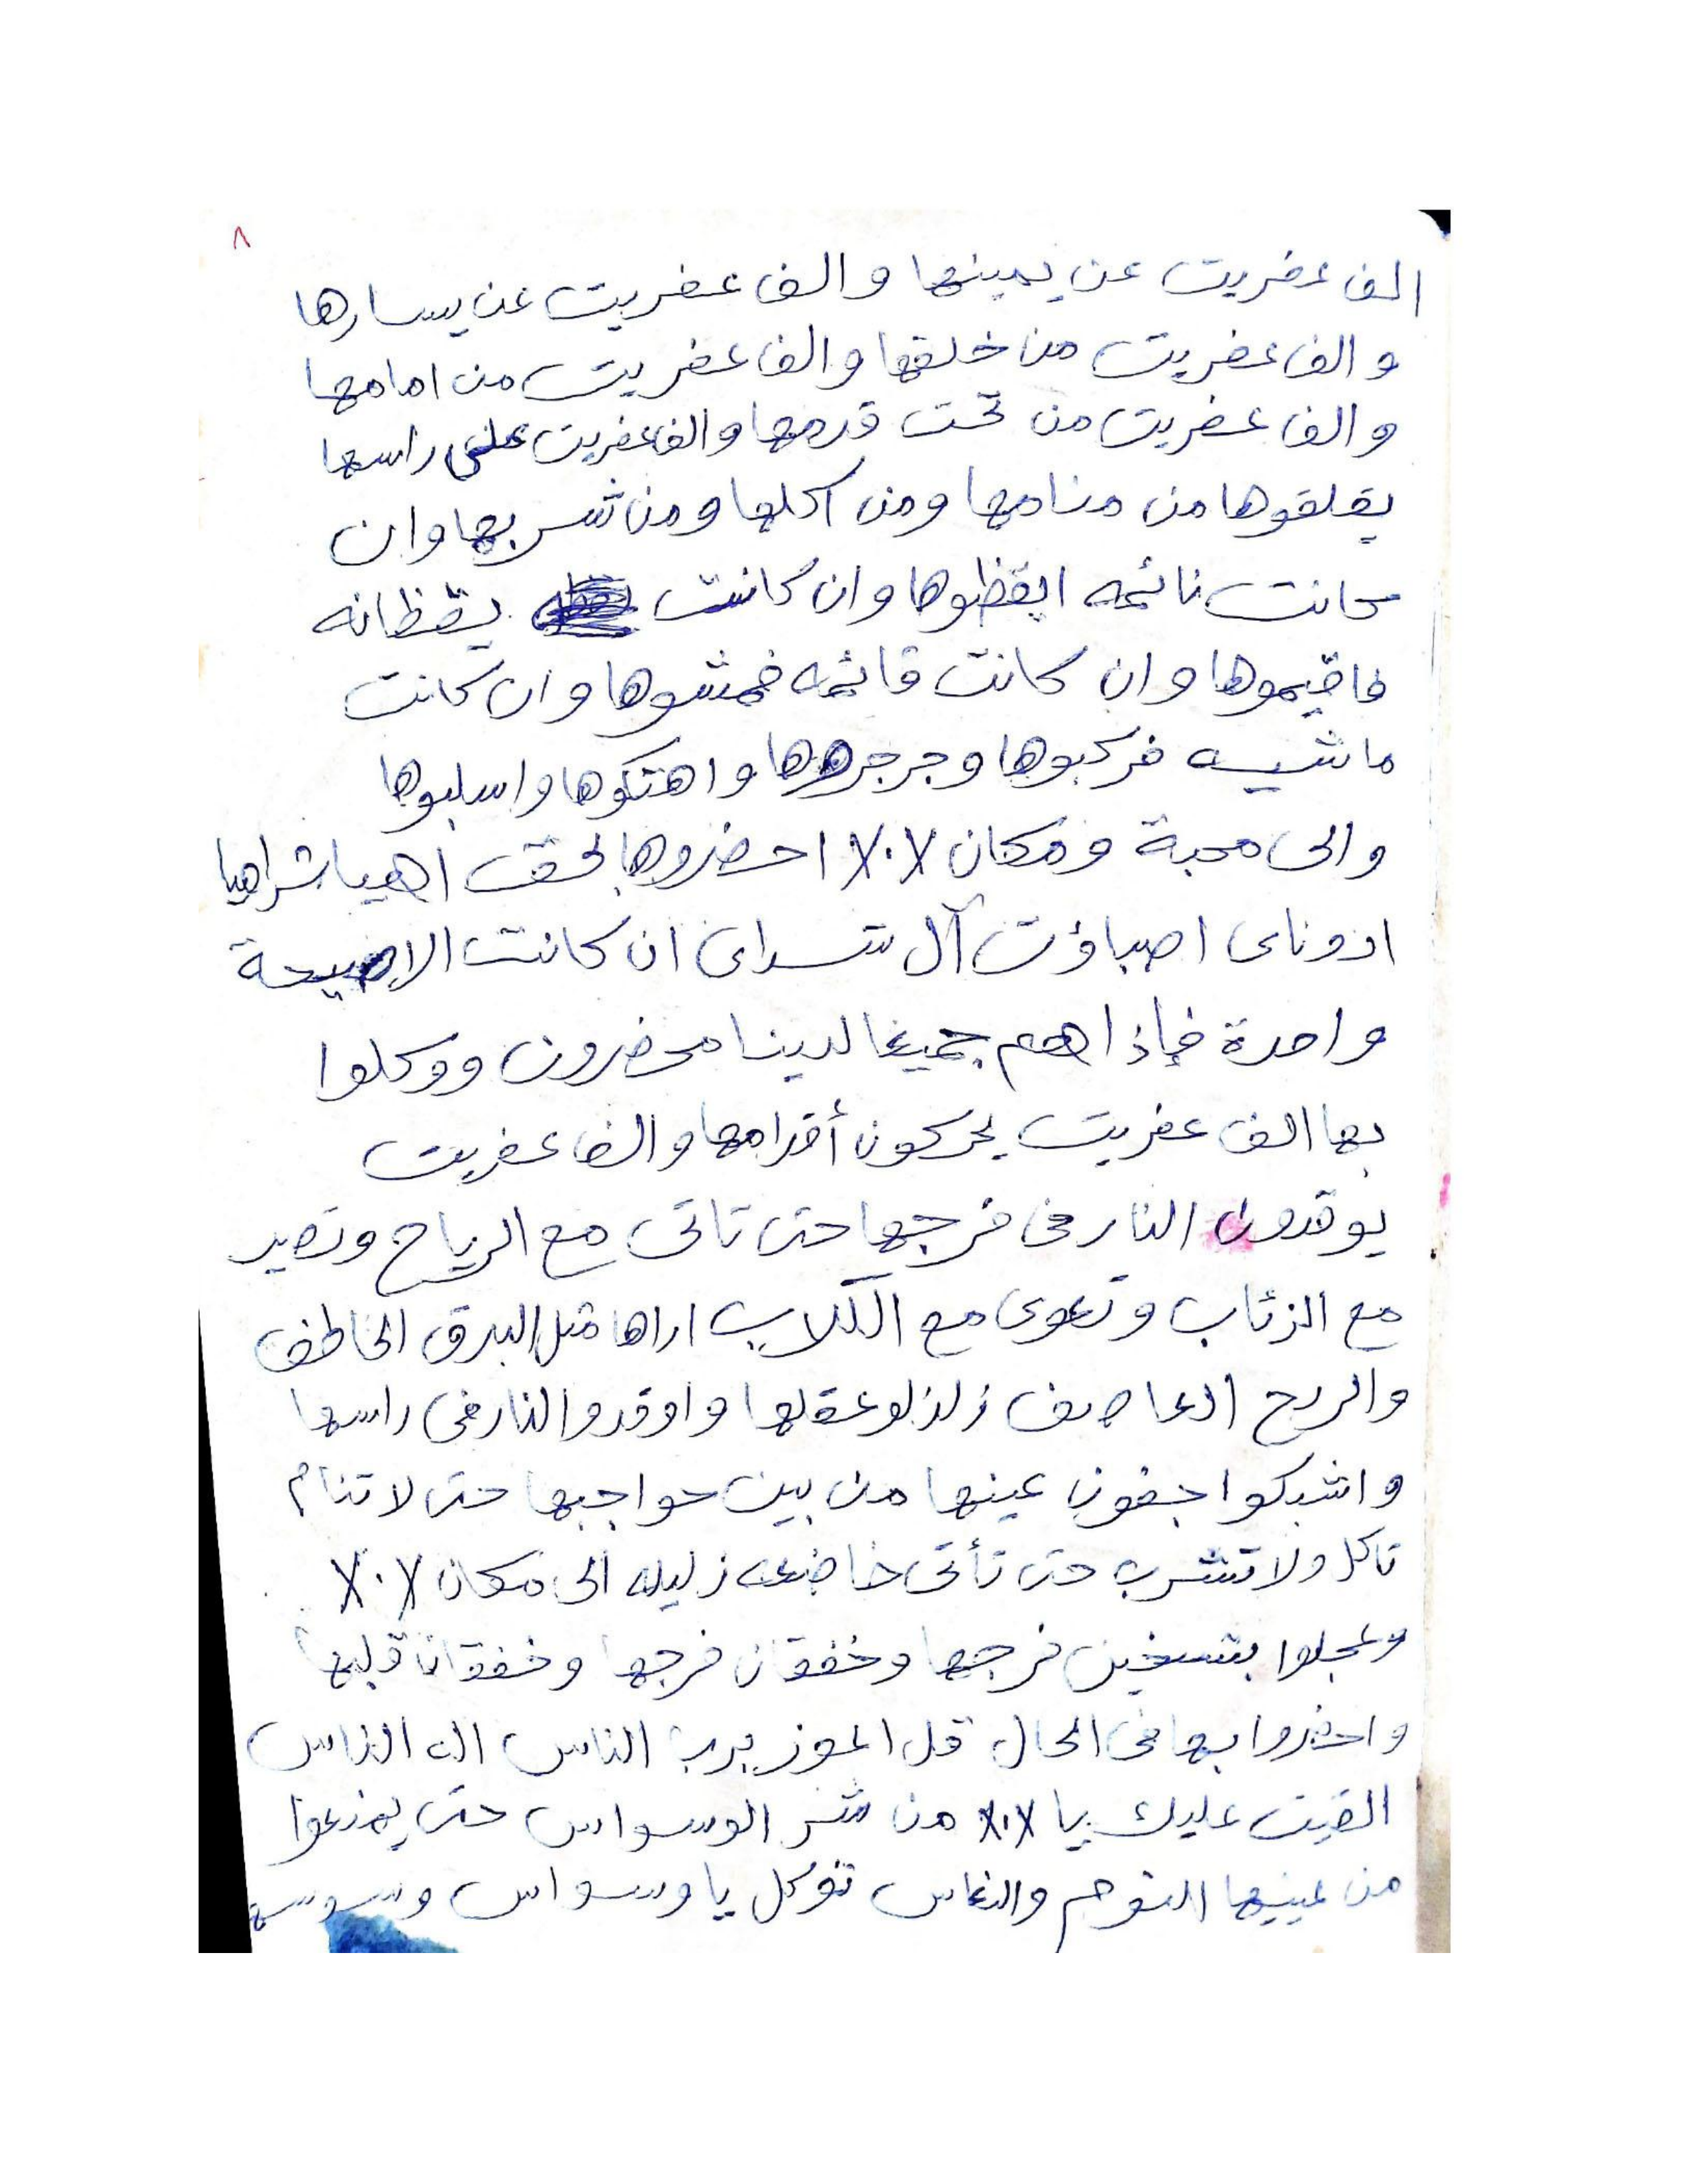 ٨
الف عفريت عن يمينها والف عفريت عن يسارها
والف عفريت من خلفها والف عفريت من امامها
والف عفريت من تحت قدمها والف عفريت على راسها
يقلقوها من منامها ومن اكلها ومن شربها وان
كانت نائمه ايقظوها وان كانت يقظانه
فاقيموها وان كانت قائمه فمشوها وان كانت
ماشيه فركبوها وجرجروها واهتكوها واسلبوها
والى محبة ومكان X.X احضروها بحق اهيا شراهيا
ادوناى اصباؤت آل شداى ان كانت الا صيحة
واحدة فإذا هم جميعا لدينا محضرون ووكلوا
بها الف عفريت يحركون أقدامها والف عفريت
يوقدون النار فى فرجها حتى تاتى مع الرياح وتصير
مع الزئاب وتعوى مع الكلاب اراها مثل البرق الخاطف
والريح العاصف زلزلو عقلها واوقدوا النار فى راسها
واشبكوا جفون عينها من بين حواجبها حتى لا تنام
تاكل ولا تشرب حتى تأتى خاضعه زليله الى مكان X.X
وعجلوا بتسخين فرجها وخفقان فرجها وخفقان قلبها
واحضروا بها فى الحال قل اعوز برب الناس اله الناس
القيت عليك يا X.X من شر الوسواس حتى يمنعوا
من عينيها النوم والنعاس توكل يا وسواس وسوسه